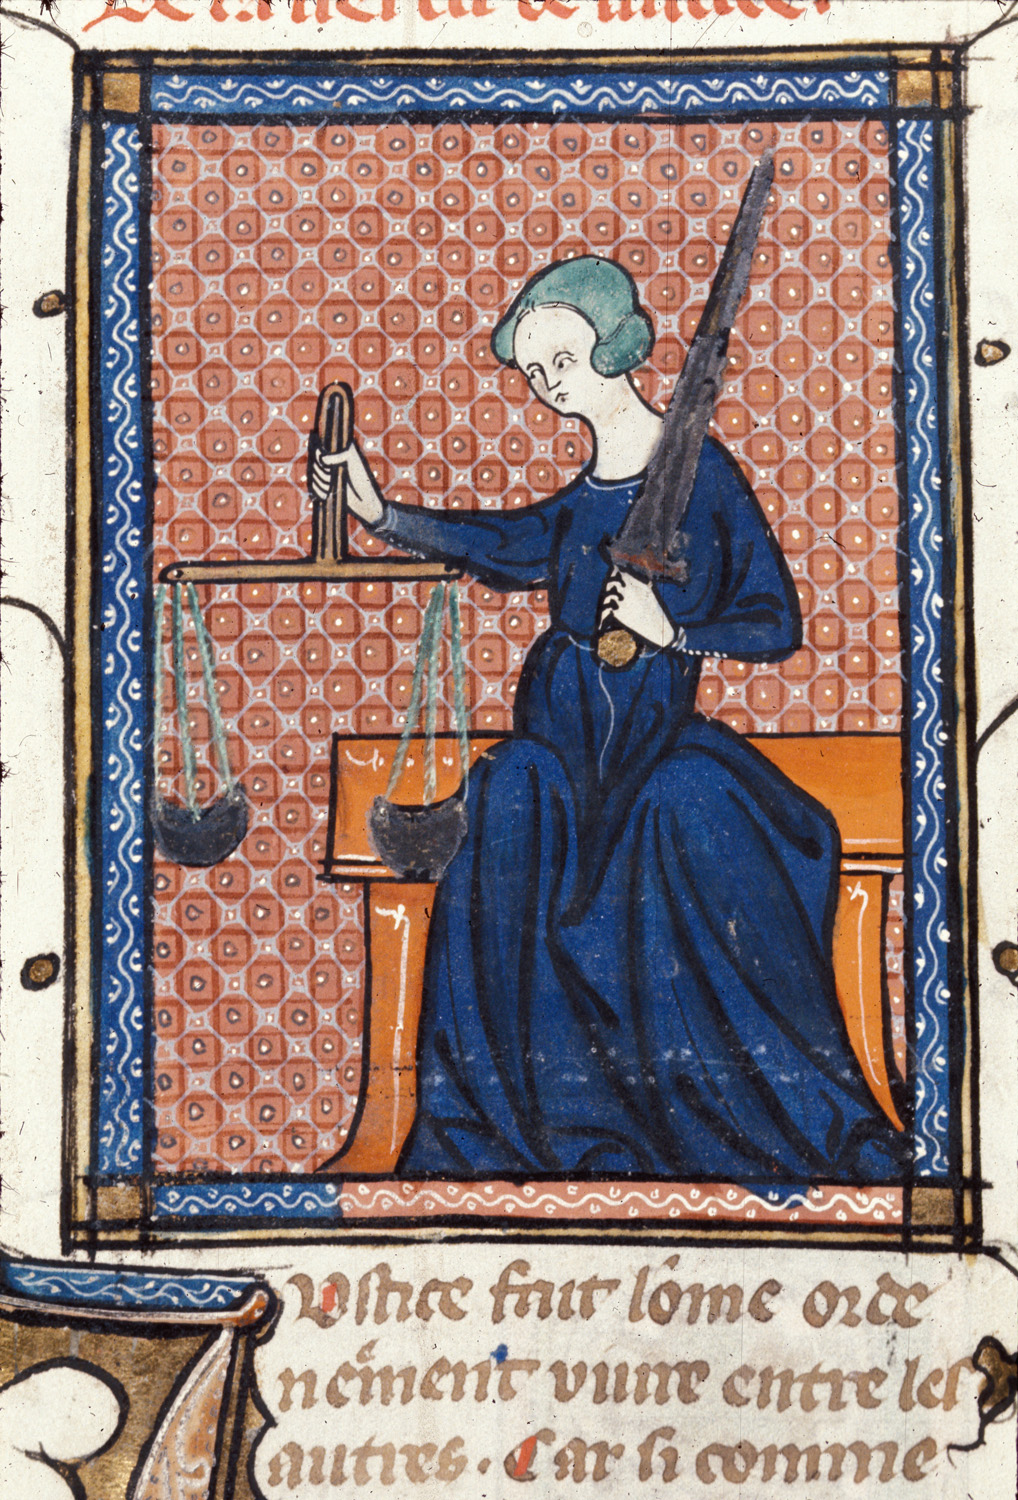 Vstice fait lome orde
neement viure entre les
autres. Car si comme